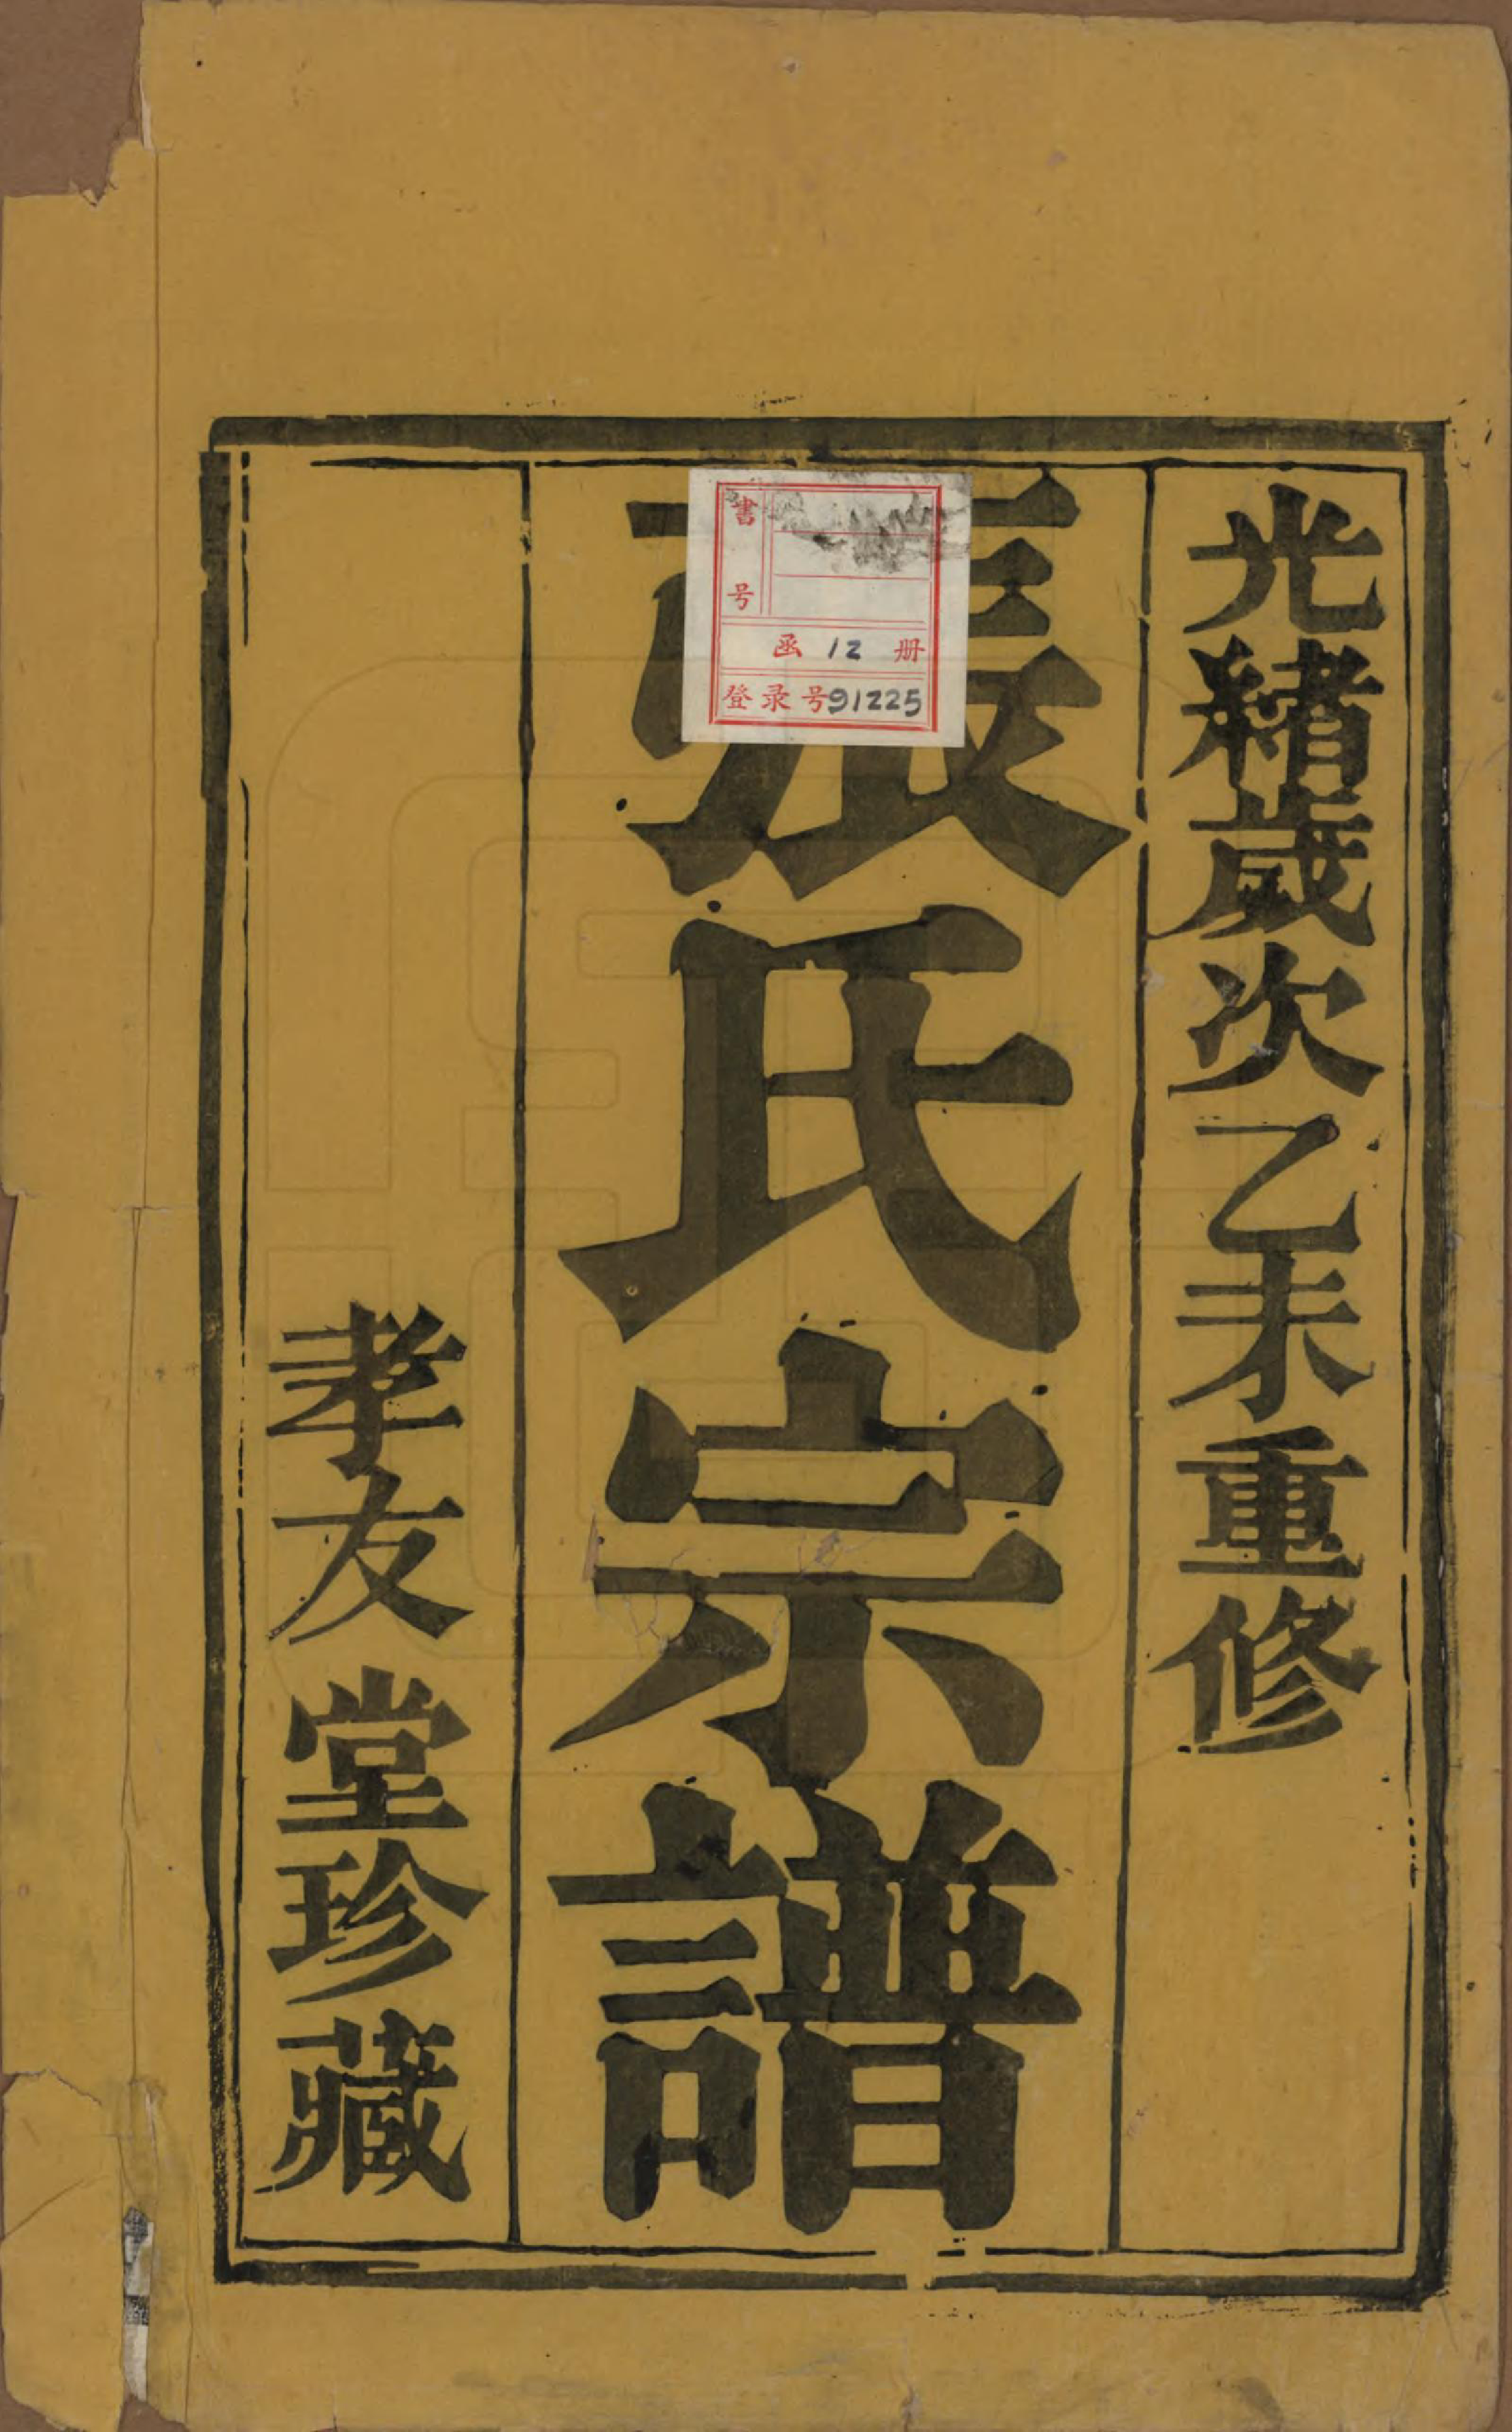 光緒歲次乙未重修
張氏宗譜
孝友堂珍藏
書号
函 12 册
登录号91225